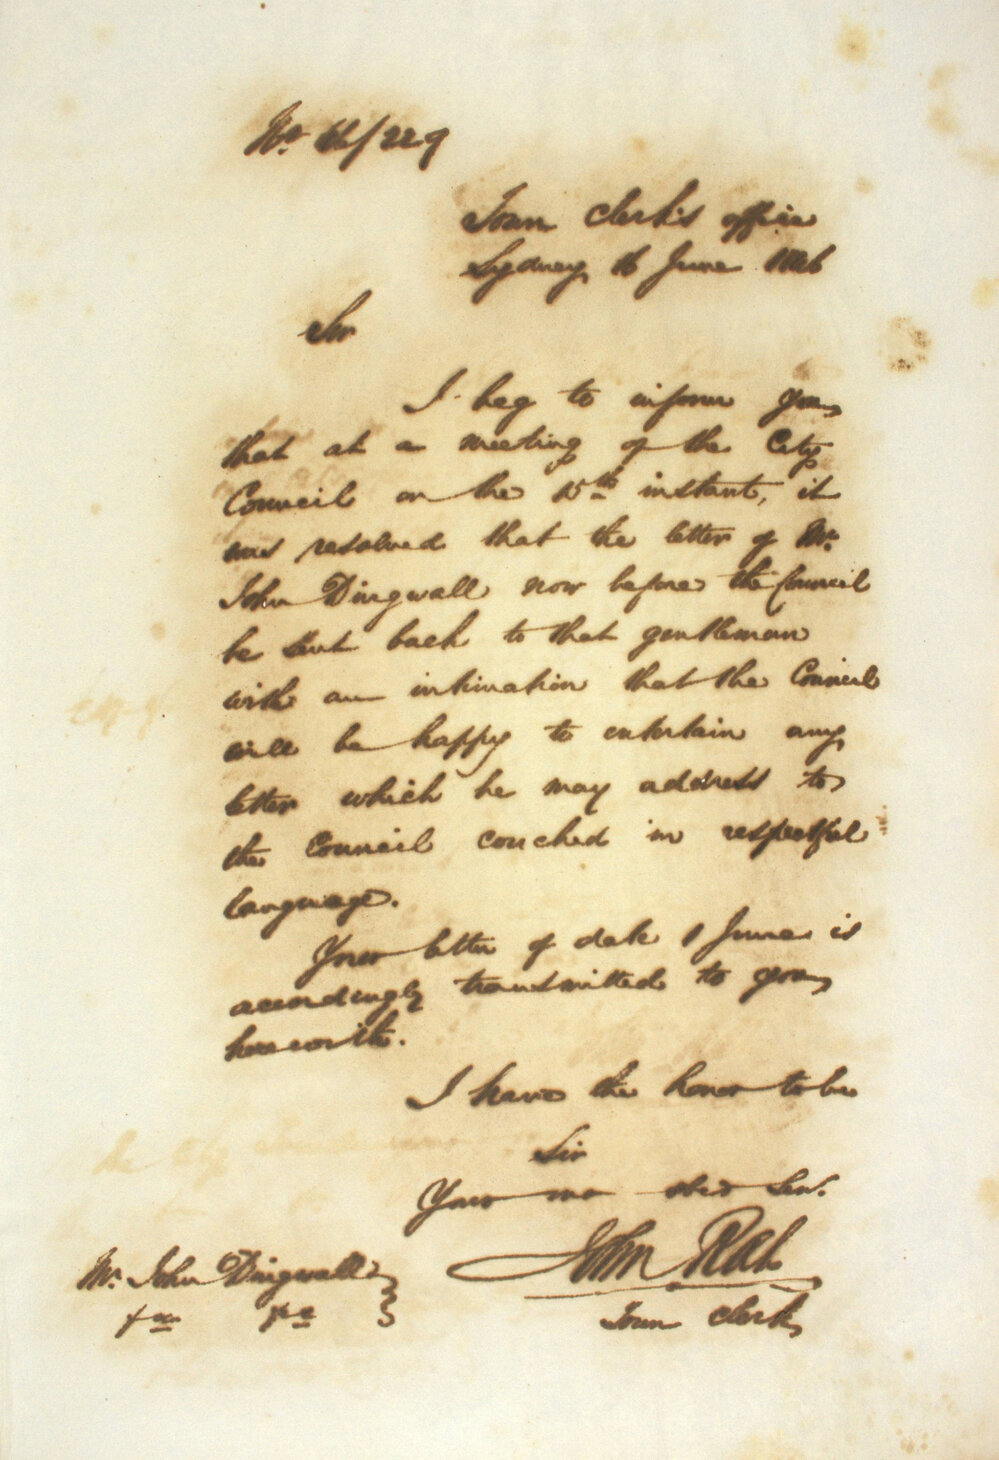 No. 46/229
Town Clerk's office
Sydney 16 June 1846
Sir
I beg to inform you
that at a meeting of the City
Council on the 15th instant, it
was resolved that the letter of Mr.
John Dingwall now before the Council
be sent back to that gentleman
with an intimation that the Council
will be happy to entertain any
letter which he may address to
the Council couched in respectful
language.
Your letter of date 1 June is
accordingly transmitted to you
herewith.
I have the honor to be
Sir
Your mo obed Ser.
John Rae
Town Clerk
Mr. John Dingwall